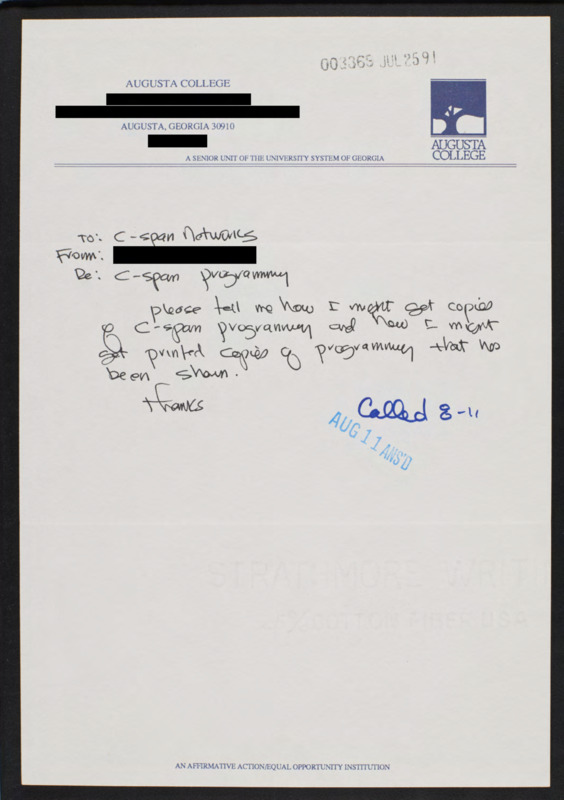 003365 JUL 25 91
AUGUSTA COLLEGE
AUGUSTA, GEORGIA 30910
A SENIOR UNIT OF THE UNIVERSITY SYSTEM OF GEORGIA
AUGUSTA
COLLEGE
To: C-span Networks
From:
Re: C-span programming
please tell me how I might get copies
of C-span programming and how I might
get printed copies of programming that has
been shown.
Thanks
Called 8-11
AUG 11 ANS'D
STRATHMORE WRIT
25% COTTON FIBER USA
AN AFFIRMATIVE ACTION/EQUAL OPPORTUNITY INSTITUTION